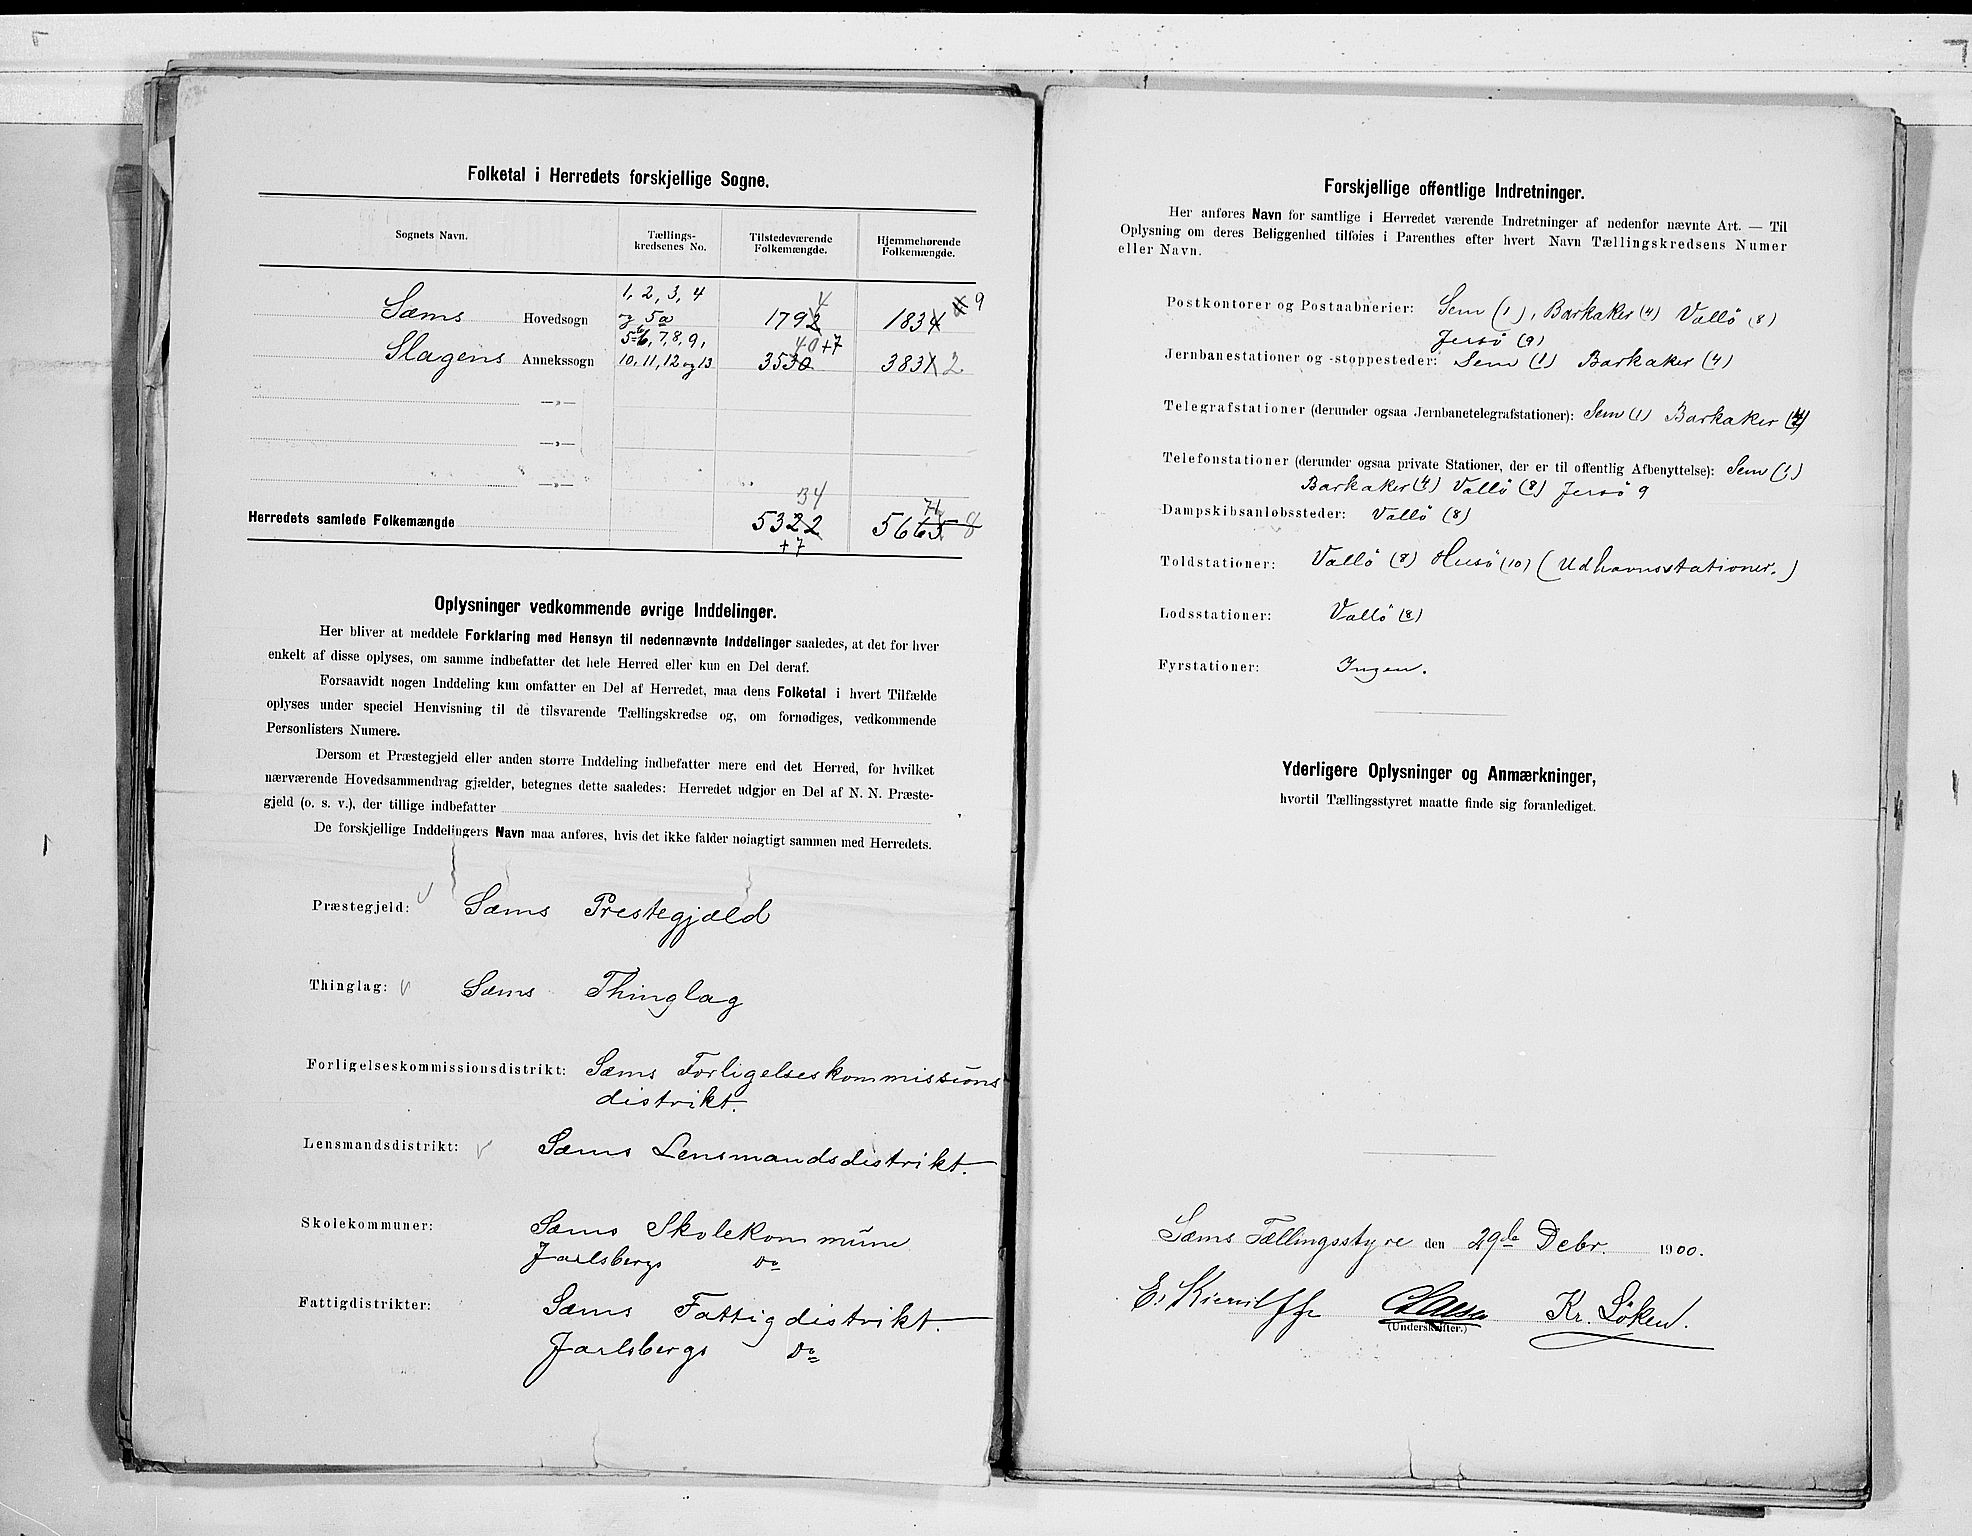 Folketal i Herredets forskjellige Sogne.
Sognets Navn.
Tællings-
kredsenes No.
Tilstedeværende
Folkemængde.
Hjemmehørende
Folkemængde.
1, 2, 3, 4
Sæms Hovedsogn og 5a 1792 4 1834 9
5b, 7, 8, 9, 40 +7
Slagens Annekssogn 10, 11, 12 og 13 3530 3831 2
—„—
—„—
—„—
34 71
Herredets samlede Folkemængde 5322 5665 8
+7
Oplysninger vedkommende øvrige Inddelinger.
Her bliver at meddele Forklaring med Hensyn til nedennævnte Inddelinger saaledes, at det for hver
enkelt af disse oplyses, om samme indbefatter det hele Herred eller kun en Del deraf.
Forsaavidt nogen Inddeling kun omfatter en Del af Herredet, maa dens Folketal i hvert Tilfælde
oplyses under speciel Henvisning til de tilsvarende Tællingskredse og, om fornødiges, vedkommende
Personlisters Numere.
Dersom et Præstegjeld eller anden større Inddeling indbefatter mere end det Herred, for hvilket
nærværende Hovedsammendrag gjælder, betegnes dette saaledes: Herredet udgjør en Del af N. N. Præste-
gjeld (o. s. v.), der tillige indbefatter
De forskjellige Inddelingers Navn maa anføres, hvis det ikke falder nøiagtigt sammen med Herredets.
Præstegjeld: Sæms Prestegjæld
Thinglag: Sæms Thinglag
Forligelseskommissionsdistrikt: Sæms Forligelseskommissions
distrikt.
Lensmandsdistrikt: Sæms Lensmandsdistrikt.
Skolekommuner: Sæms Skolekommune
Jarlsbergs Do
Fattigdistrikter: Sæms Fattigdistrikt.
Jarlsbergs Do
Forskjellige offentlige Indretninger.
Her anføres Navn for samtlige i Herredet værende Indretninger af nedenfor nævnte Art. — Til
Oplysning om deres Beliggenhed tilføies i Parenthes efter hvert Navn Tællingskredsens Numer
eller Navn.
Postkontorer og Postaabnerier: Sem (1), Barkaker (4) Vallö (8)
Jersö (9)
Jernbanestationer og -stoppesteder: Sem (1) Barkaker (4)
Telegrafstationer (derunder ogsaa Jernbanetelegrafstationer): Sem (1) Barkaker (4)
Telefonstationer (derunder ogsaa private Stationer, der er til offentlig Afbenyttelse): Sem (1)
Barkaker (4) Vallö (8) Jersö 9
Dampskibsanløbssteder: Vallö (8)
Toldstationer: Vallö (8) Husö (10) (Udhavnsstationer.)
Lodsstationer: Vallö (8)
Fyrstationer: Ingen.
Yderligere Oplysninger og Anmærkninger,
hvortil Tællingsstyret maatte finde sig foranlediget.
Sæms Tællingsstyre den 29de Debr. 1900.
Kr. Löken.
(Underskrifter.)